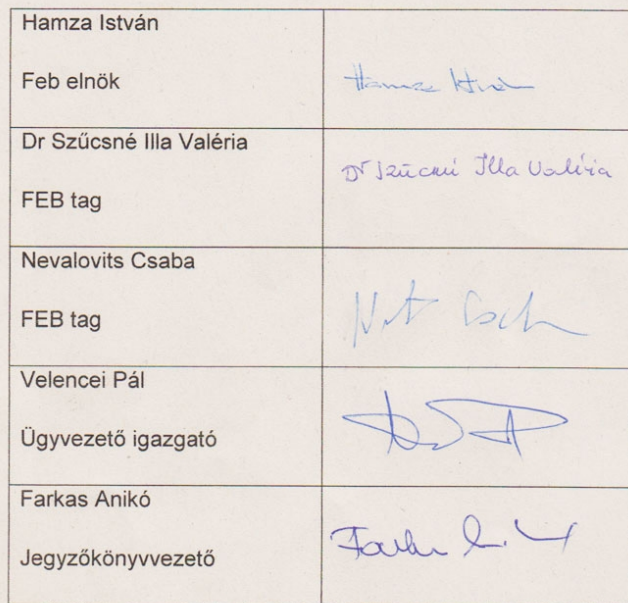 Hamza István
Feb elnök
Dr Szűcsné Illa Valéria
Dr Szűcsné Illa Valéria
FEB tag
Nevalovits Csaba
FEB tag
Velencei Pál
Ügyvezető igazgató
Farkas Anikó
Jegyzőkönyvvezető